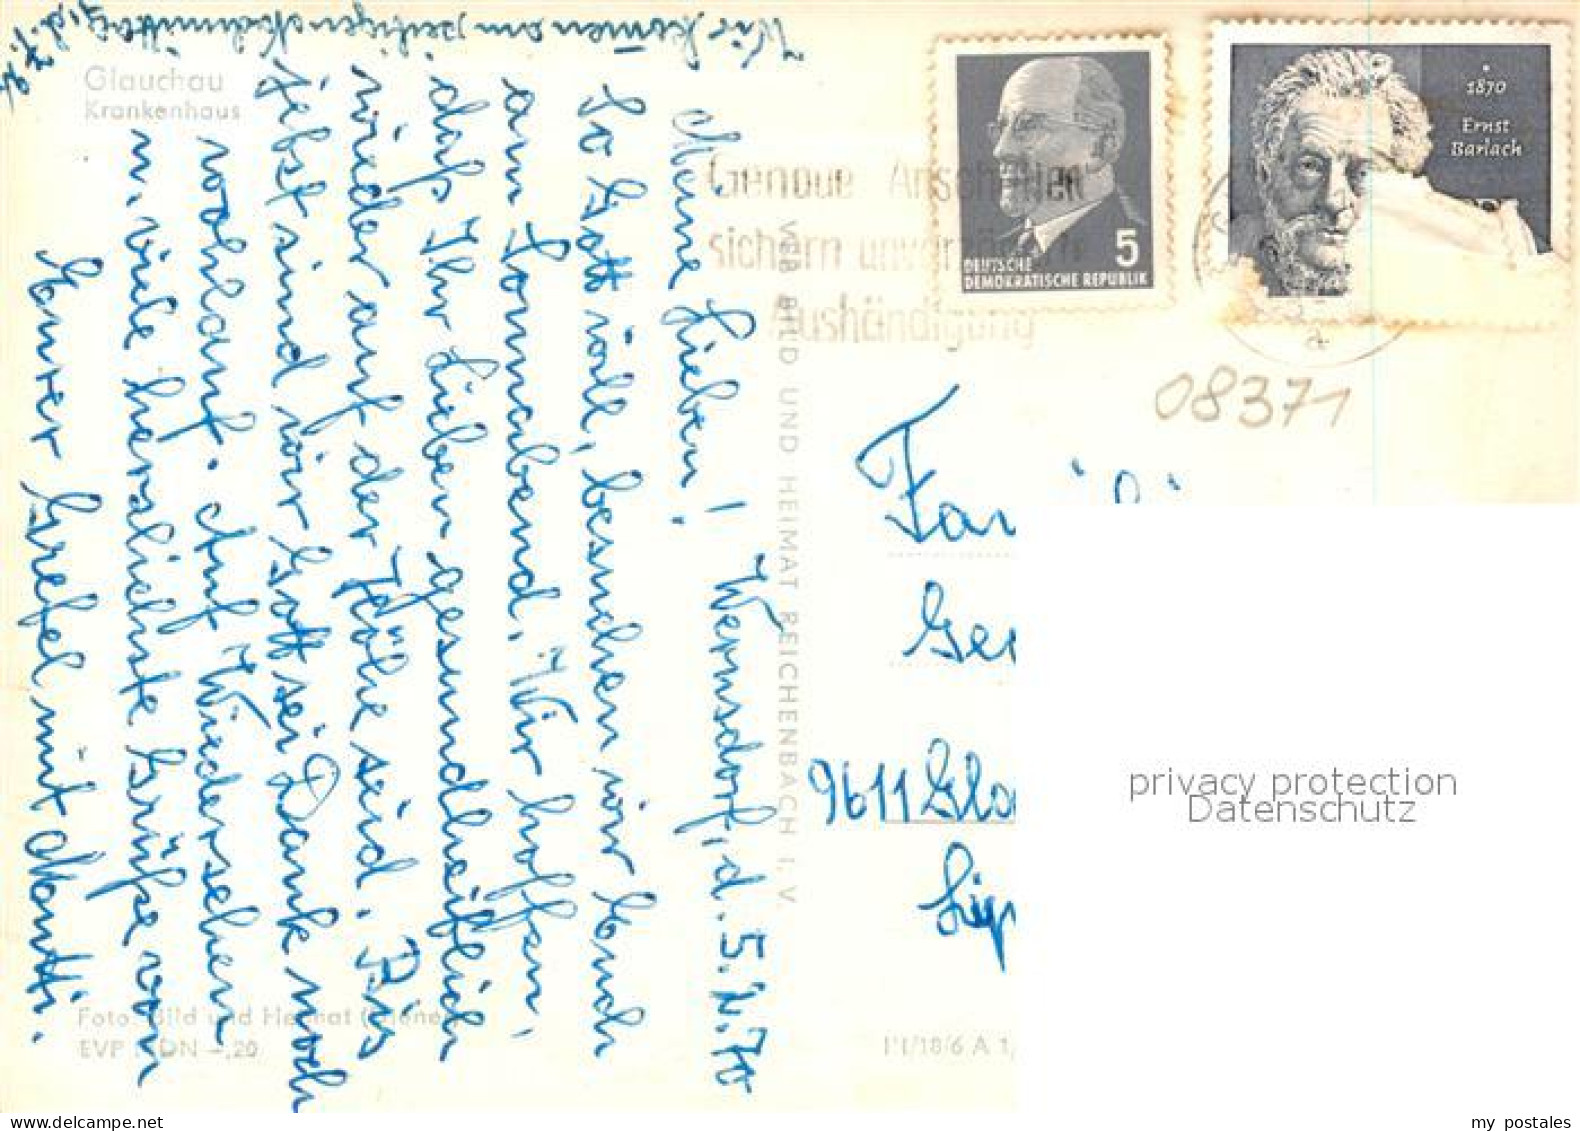 Wir kommen am heutigen Nachmittag
Glauchau
Krankenhaus
Wernsdorf, d. 5.2.70
Meine Lieben!
So Gott will, besuchen wir Euch
am Sonnabend. Wir hoffen,
daß Ihr Lieben gesundheitlich
wieder auf der Höhe seid. Bis
jetzt sind wir Gott sei Dank noch
wohlauf. Auf Wiedersehen
u. viele herzlichste Grüße von
Eurer Gretel mit Manfr.
Foto: Bild und Heimat
EVP MDN -,20
VEB BILD UND HEIMAT REICHENBACH I. V.
III/18/6 A 1,
Genaue Anschriften
sichern unverzügliche
Aushändigung
5
DEUTSCHE
DEMOKRATISCHE REPUBLIK
1870
Ernst
Barlach
08371
Fam
Ger
9611 Gla
Lip
privacy protection
Datenschutz
my postales